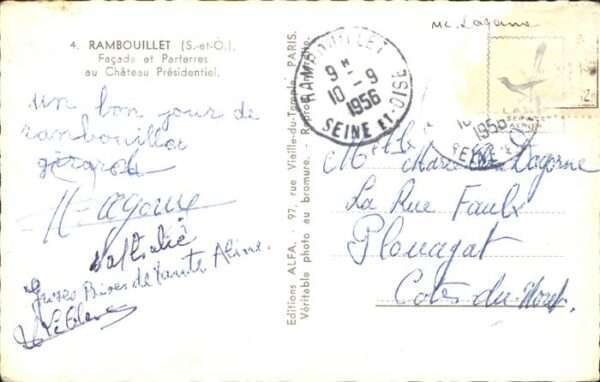 4. RAMBOUILLET (S.-et-O.).
Façade et Parterres
au Château Présidentiel.
un bon jour de
rambouillet
gérard
Nathalie
Bises de Tante Aline.
Editions ALFA. - 97, rue Vieille-du-Temple, PARIS.
Véritable photo au bromure. - Reproduction interdite
RAMBOUILLET
9 H
10 - 9
1956
SEINE ET-OISE
10
1956
SEINE
Mlle Marie Dagorne
La Rue Faulx
Plouagat
Cotes du Nord.